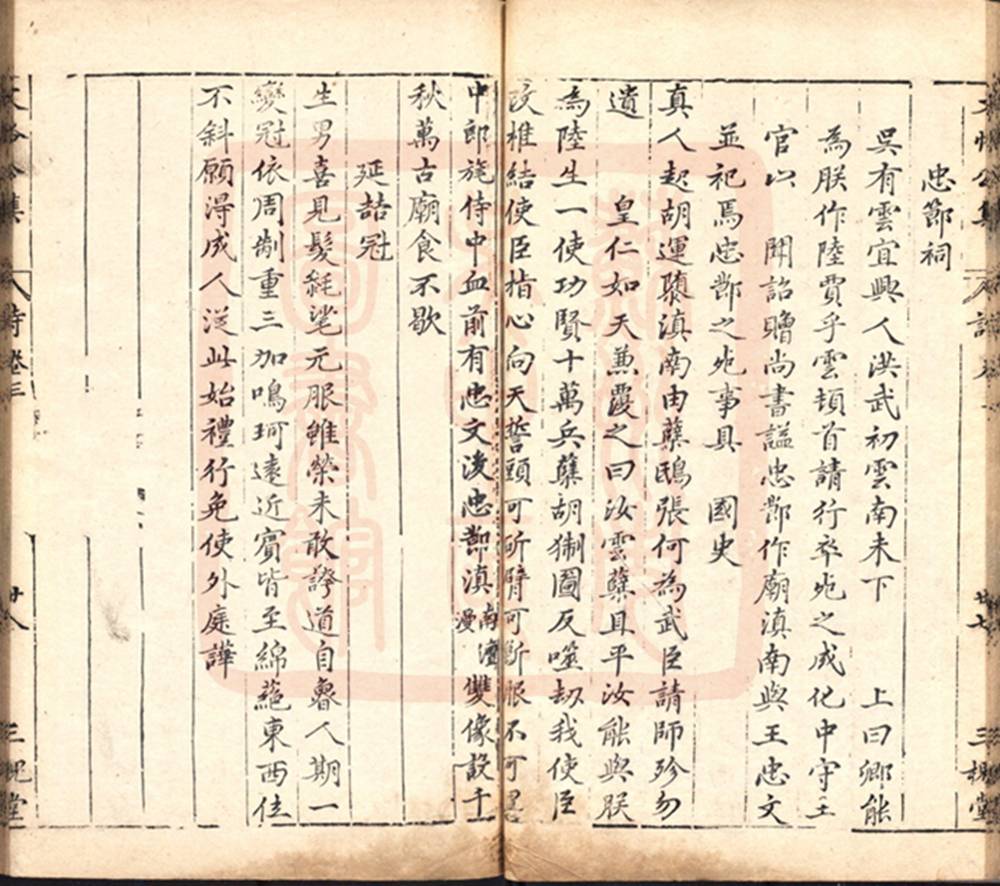 忠節祠
吳有雲宜興人洪武初雲南未下 上曰卿能
為朕作陸賈乎雲頓首請行卒死之成化中守土
官以 聞詔贈尚書謚忠節作廟滇南與王忠文
並祀焉忠節之死事具 國史
真人起胡運隳滇南由蘖鴟張何為武臣請師殄勿
遺 皇仁如天兼覆之曰汝雲蘖且平汝能與朕
為陸生一使功賢十萬兵蘖胡猘國反噬劫我使臣
改椎結使臣指心向天誓頭可斫臂可斷恨不可
中郎旄侍中血前有忠文後忠節滇南漫漫雙像設千
秋萬古廟食不歇
延喆冠
生男喜見髮毿毿元服雖榮未敢誇道自魯人期一
變冠依周制重三加鳴珂遠近賓皆至綿蕝東西位
不斜願得成人從此始禮行免使外庭譁
詩卷三
廿八
三槐堂
廿七
三槐堂